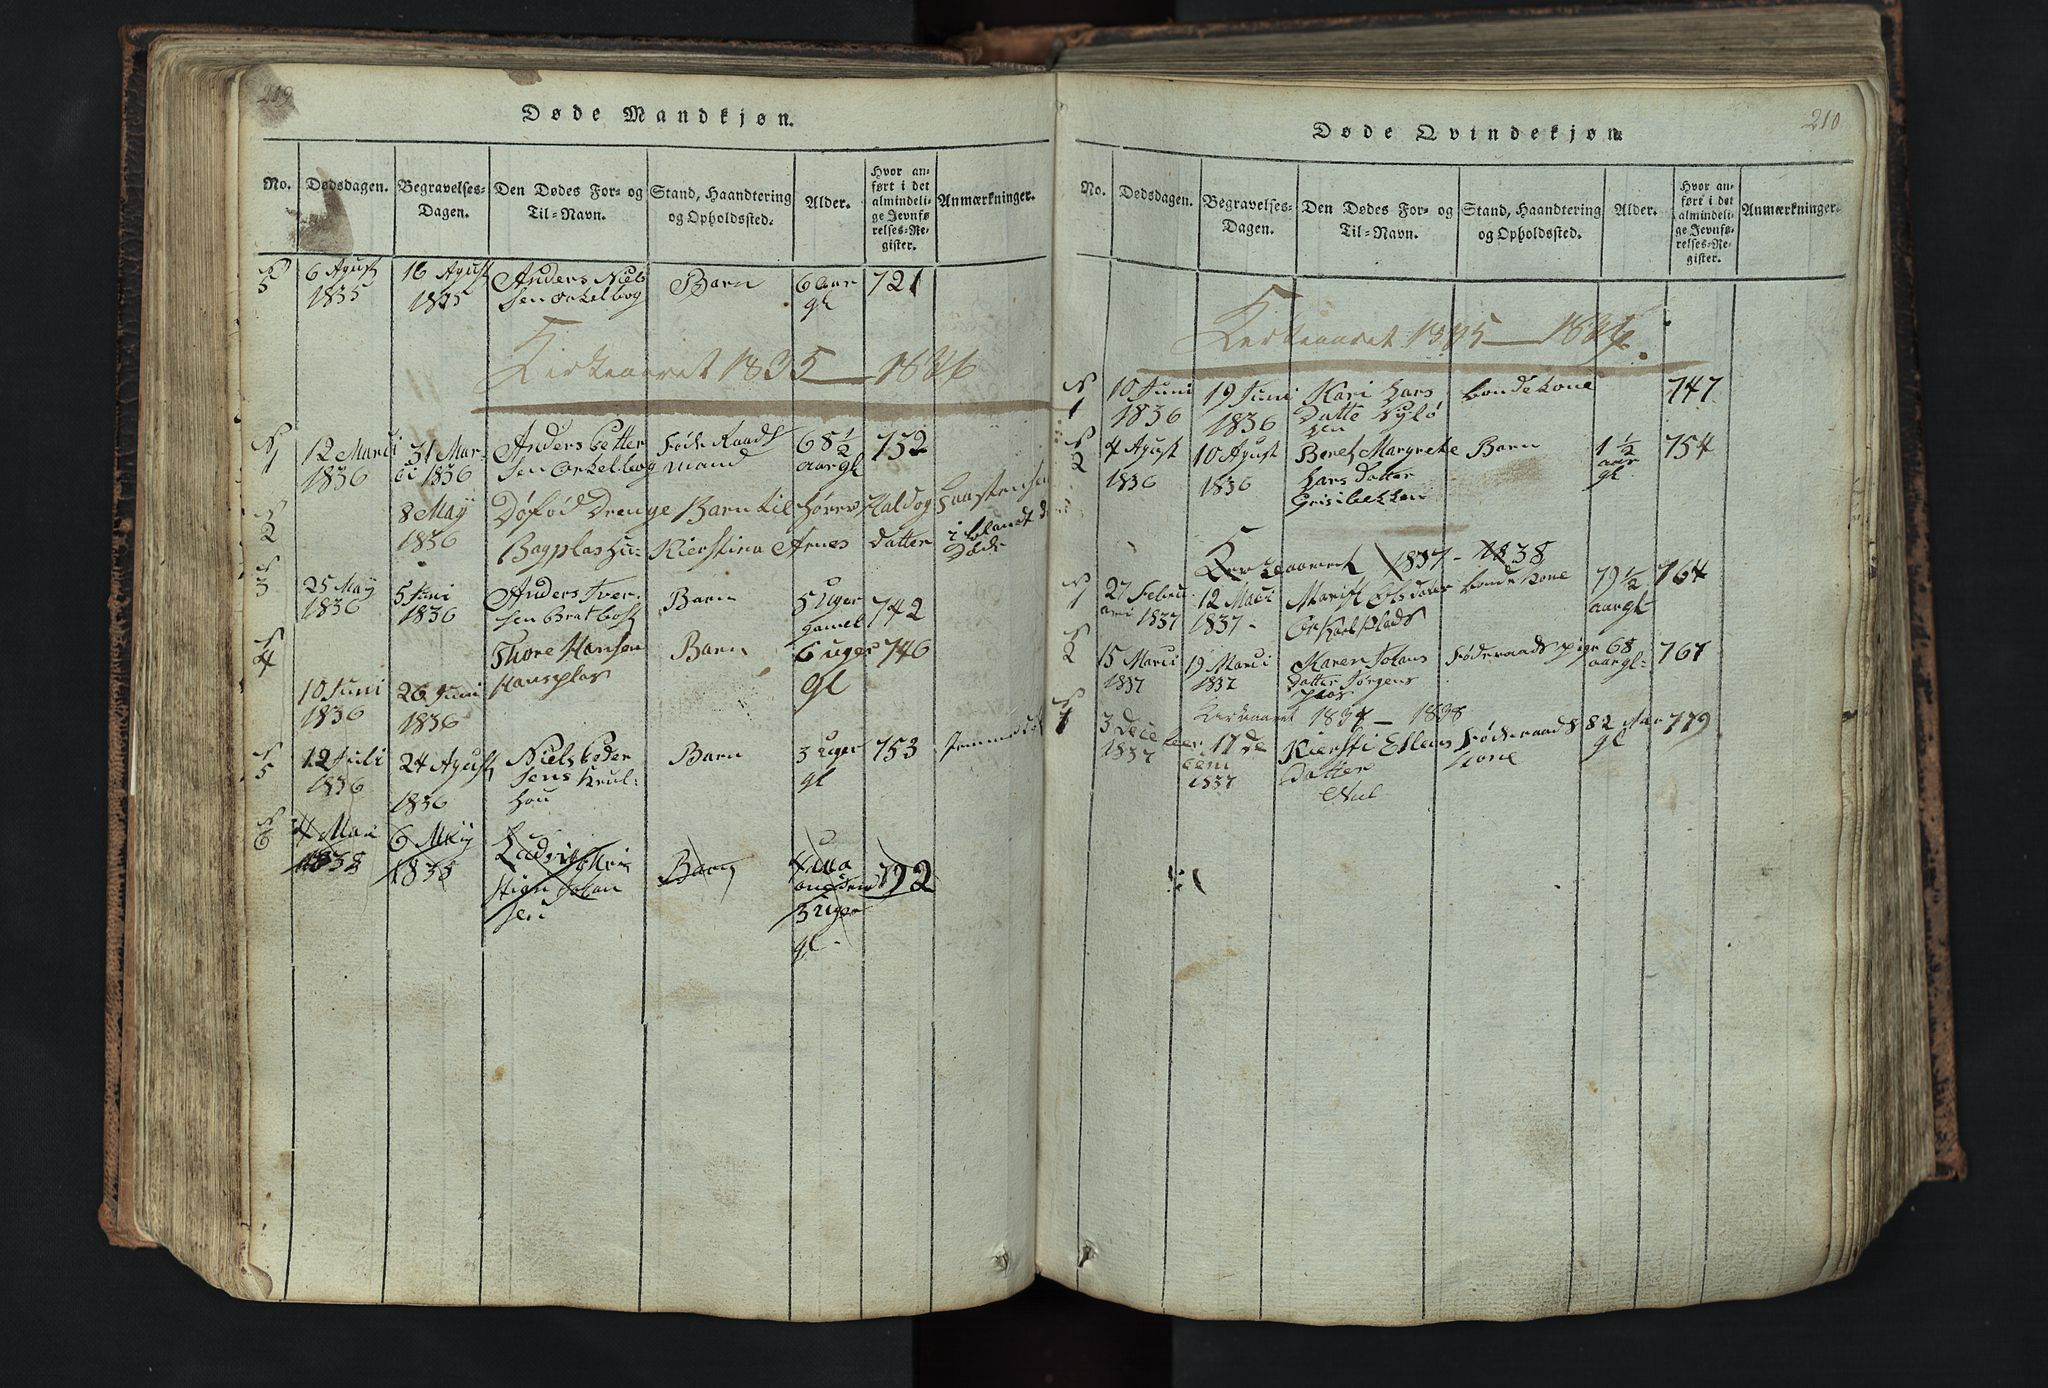 209
Døde Mandkjøn.
No.
Dødsdagen.
Begravelses-
Dagen.
Den Dødes For- og
Til-Navn.
Stand, Haandtering
og Opholdssted.
Alder.
Hvor an-
ført i det
almindeli-
ge Jevnfø-
relses-Re-
gister.
Anmærkninger.
N
5
6 Agust
1835
16 Agust
1835
Anders Niels
sen Orkelbog
Barn
6 aar
gl
721
Kirkeaaret 1835 — 1836
N
1
12 Marci
1836
31 Mar-
ci 1836
Anders Petter
sen Orkelbog
Føde Raads
mand
68 ½
aar gl
752
N
2
8 May
1836
Døfød Drenge Barn til Sører Haldog
Bagplas hu- Kierstina Arnes datter
i blandt d
Døde
N
3
25 May
1836
5 Juni
1836
Anders Iver-
sen Bratbost
Barn
5 Uger
gamel
742
N
4
10 Juni
1836
26 Juni
1836
Thore Hansen
Hansplas
Barn
6 uger
gl
746
N
5
12 Juli
1836
24 Agust
1836
Niels Peder
sens
hou
Barn
3 uger
gl
753
N
6
4 Mai
1838
6 Maij
1838
Ladvig Kri
stian Johan
sen
Barn
4 Ma
aneder
3 Uger
gl.
792
210
Døde Qvindekjøn
No.
Dødsdagen.
Begravelses-
Dagen.
Den Dødes For- og
Til-Navn.
Stand, Haandtering
og Opholdssted.
Alder.
Hvor an-
ført i det
almindeli-
ge Jevnfø-
relses-Re-
gister.
Anmærkninger.
Kerkeaaret 1835 — 1836.
N
1
10 Juni
1836
19 Juni
1836
Kari Lars
Datte
bonde kone
747
N
2
4 Agust
1836
10 Agust
1836
Beret Margrete
Lars Datter
Grisibekken
Barn
1 ½
aar
gl.
754
1837 - 1838
N
1
27 Febru
ari 1837
12 Marci
1837-
Marit Ols dater
Orkelsplads
bonde kone
79 ½
aar gl-
764
N
2
15 Marci
1837
19 Marci
1837
Karen Johans
datter Jørgens
plas
Føderaads pige
68
aar gl-
767
Kerkeaaret 1837 — 1838
N
1
3 Dece
1837
17 de
cem
1837
Kiersti Ellens
Datter
Føderaads
kone
82 Aar
gl
779